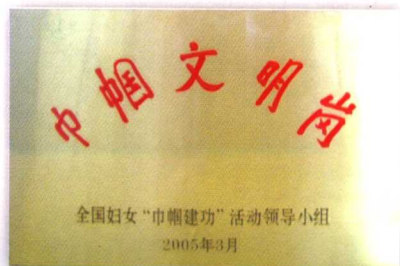 巾帼文明岗
全国妇女“巾帼建功”活动领导小组
2005年3月